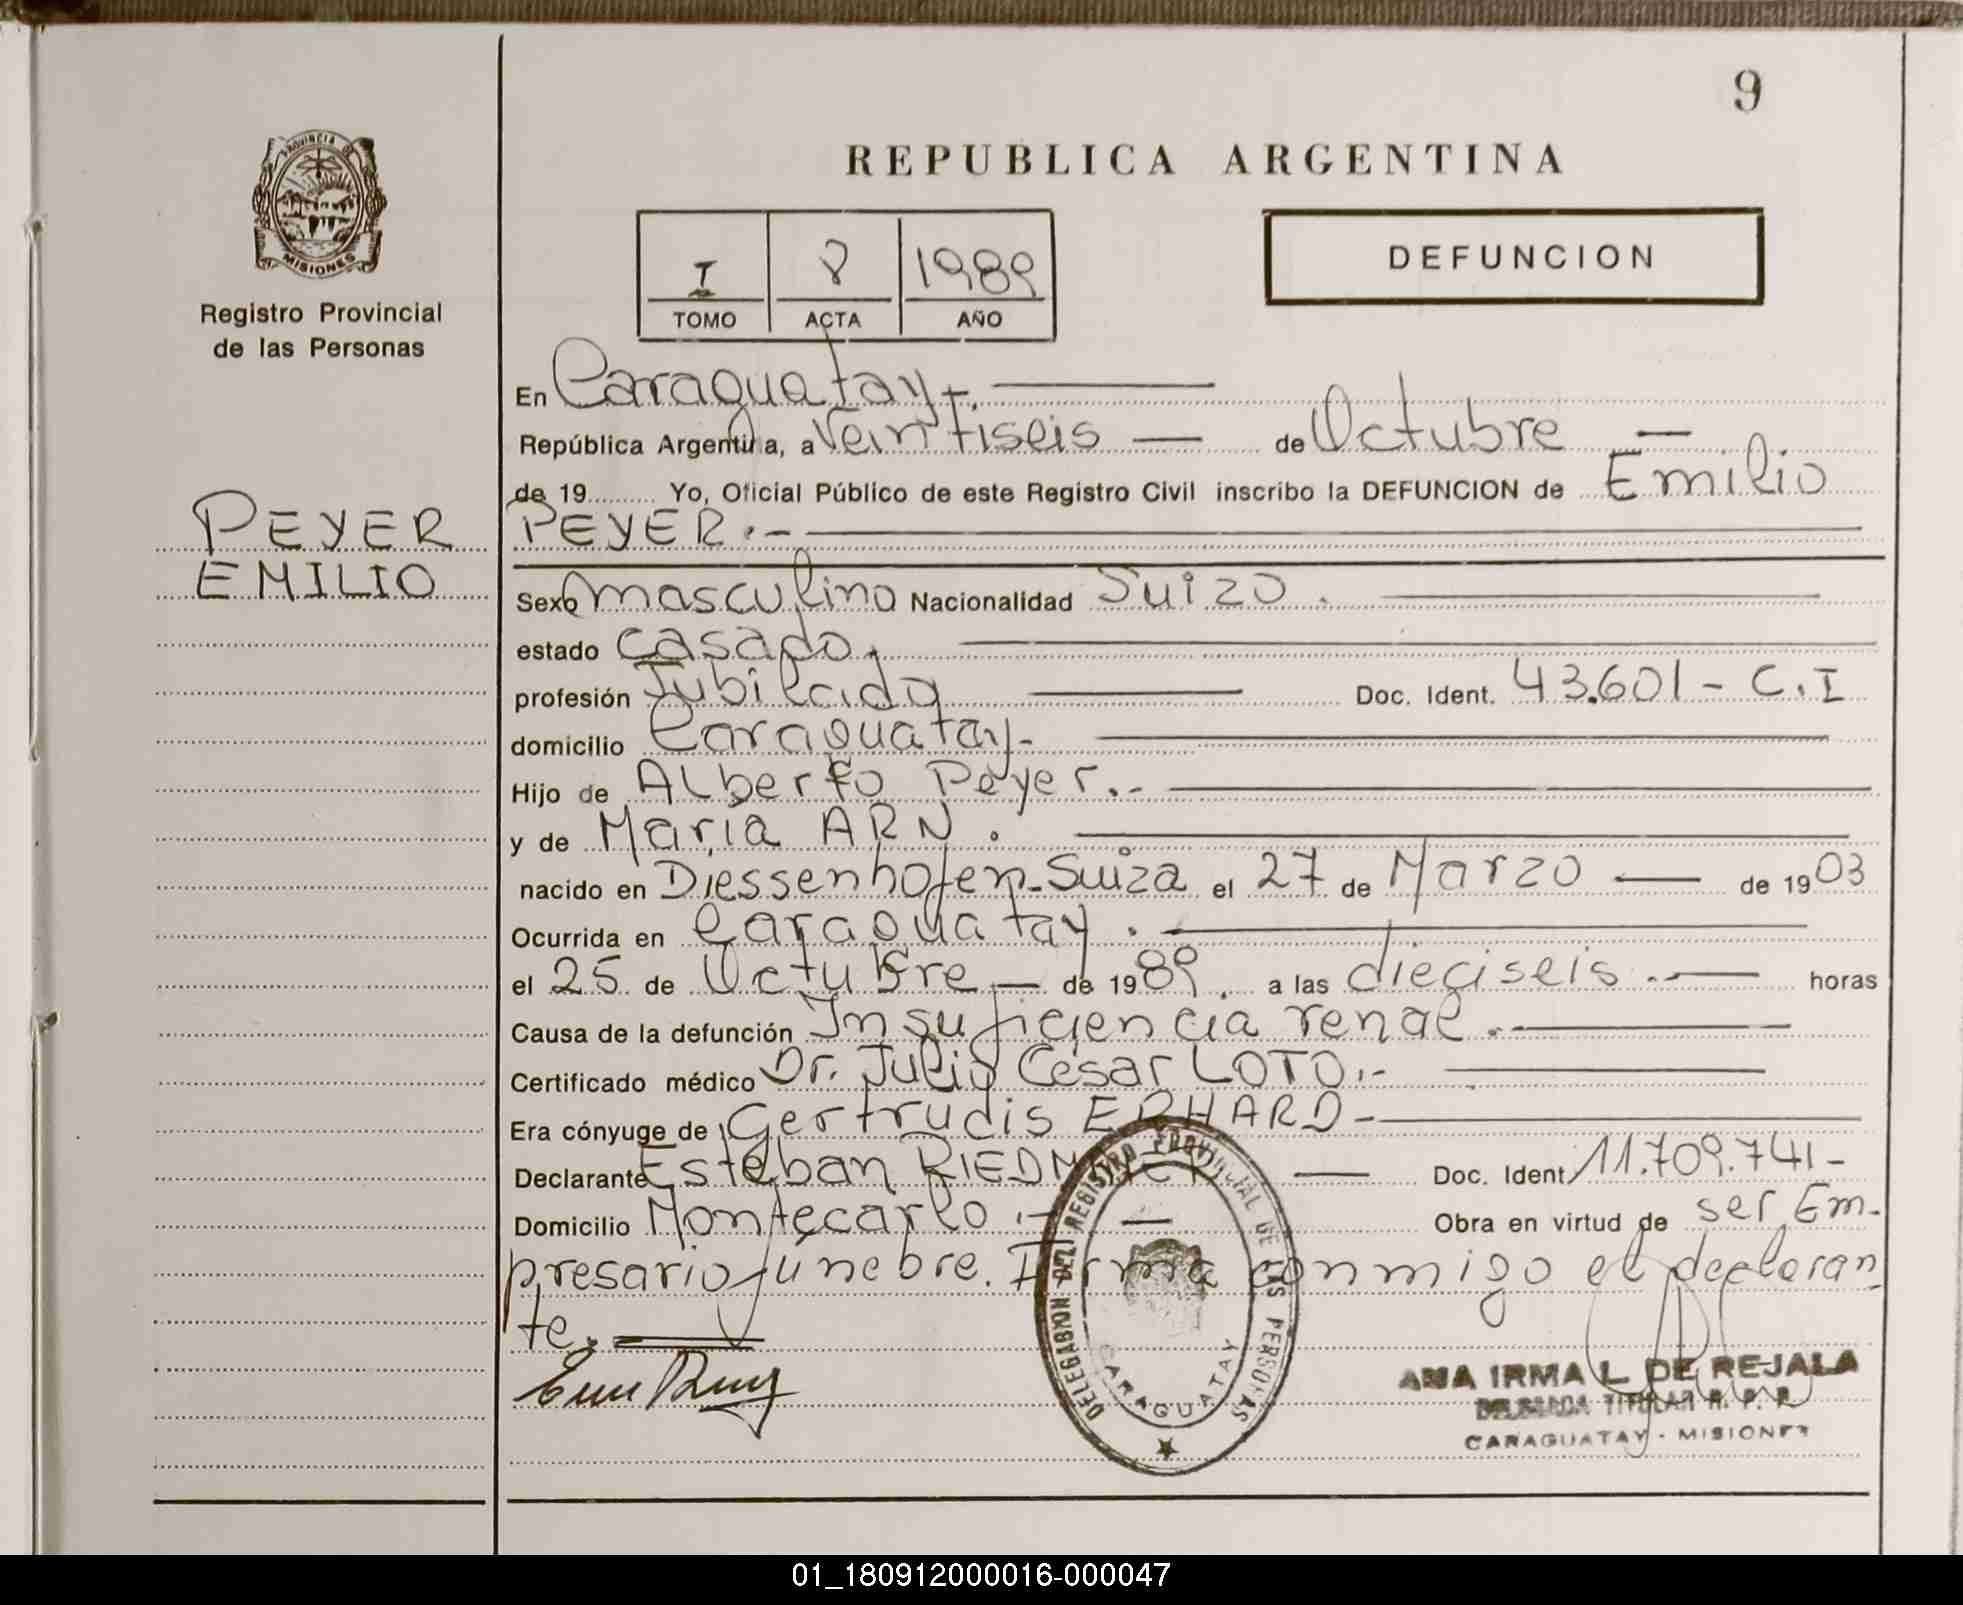 9
PROVINCIA DE
MISIONES
Registro Provincial
de las Personas
PEYER
EMILIO
REPUBLICA ARGENTINA
I 8 1989
TOMO ACTA AÑO
DEFUNCION
En Caraguatay.
República Argentina, a Veintiseis — de Octubre —
de 19 Yo, Oficial Público de este Registro Civil inscribo la DEFUNCION de Emilio
PEYER.-
Sexo masculino Nacionalidad Suizo.
estado casado.
profesión Jubilado Doc. Ident. 43.601 - C.I
domicilio Caraguatay-
Hijo de Alberto Peyer.-
y de María ARN.
nacido en Diessenhofen-Suiza el 27 de Marzo — de 1903
Ocurrida en Caraguatay.
el 25 de Octubre — de 1989. a las dieciseis.— horas
Causa de la defunción Insuficiencia renal.-
Certificado médico Dr. Julio César LOTO.-
Era cónyuge de Gertrudis ERHARD-
Declarante Esteban Doc. Ident. 11.709.741-
Domicilio Montecarlo.- — Obra en virtud de ser Em-
presario fúnebre. Firma conmigo el declaran-
te.
DELEGACION DEL REGISTRO PROVINCIAL DE LAS PERSONAS
CARAGUATAY
ANA IRMA L. DE REJALA
DELEGADA TITULAR R. P. P.
CARAGUATAY - MISIONES
01_180912000016-000047